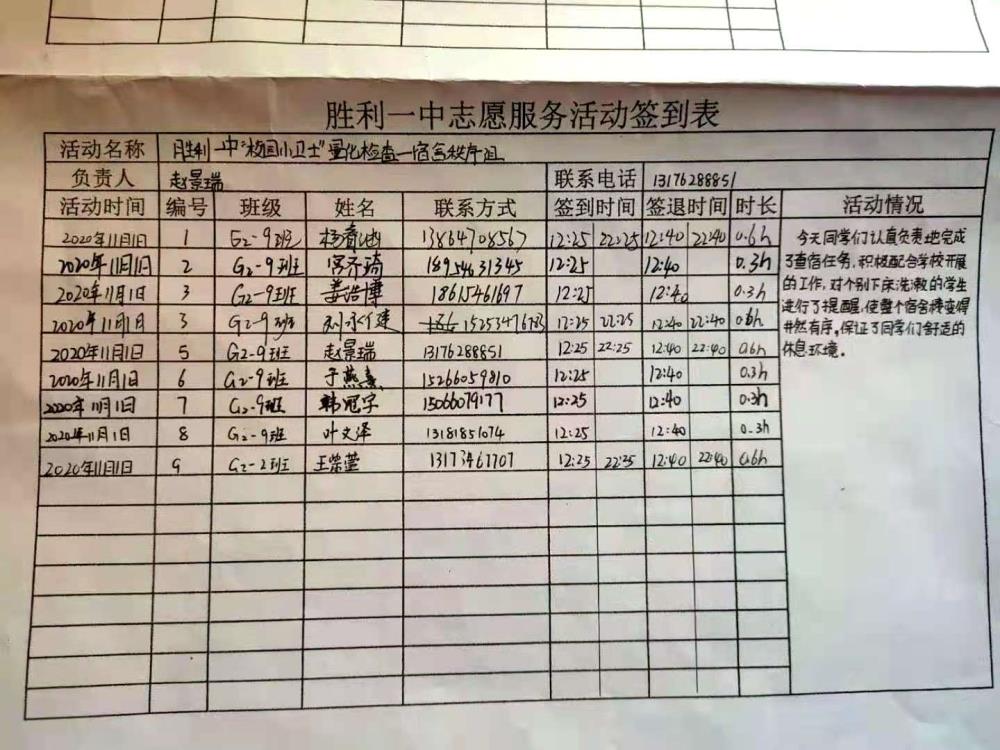 胜利一中志愿服务活动签到表
活动名称 胜利一中"校园小卫士"量化检查—宿舍秩序组
负责人 赵景瑞 联系电话 13176288851
活动时间 编号 班级 姓名 联系方式 签到时间 签退时间 时长 活动情况
2020年11月1日 1 G2-9班 杨 13864708567 12:25 22:25 12:40 22:40 0.6h
2020年11月1日 2 G2-9班 宫齐琦 18954631345 12:25 12:40 0.3h
2020年11月1日 3 G2-9班 姜浩博 18615461697 12:25 12:40 0.3h
2020年11月1日 3 G2-9班 刘 12:25 22:25 12:40 22:40 0.6h
2020年11月1日 5 G2-9班 赵景瑞 13176288851 12:25 22:25 12:40 22:40 0.6h
2020年11月1日 6 G2-9班 于燕 15266059810 12:25 12:40 0.3h
2020年11月1日 7 G2-9班 韩冠宇 15066079177 12:25 12:40 0.3h
2020年11月1日 8 G2-9班 叶文泽 13181851074 12:25 12:40 0.3h
2020年11月1日 9 G2-2班 王崇萱 13173467707 12:25 22:25 12:40 22:40 0.6h
今天同学们认真负责地完成
了查宿任务,积极配合学校开展
的工作,对个别下床洗漱的学生
进行了提醒,使整个宿舍楼变得
井然有序,保证了同学们舒适的
休息环境。